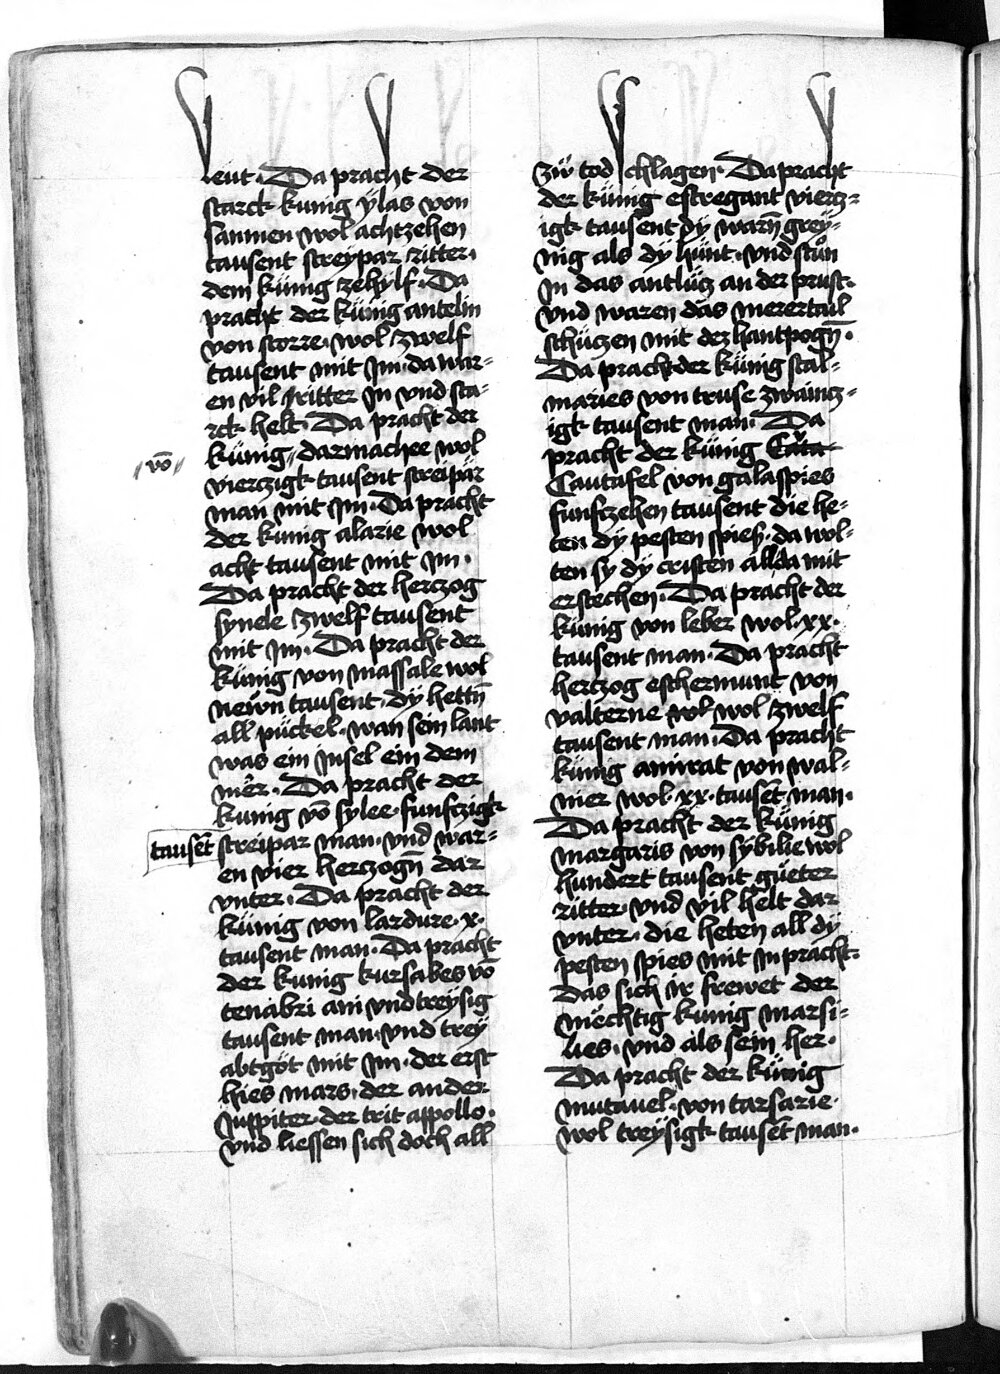 leut. Da pracht der
starck kunig ylas von
sanmen wol achtzehen
tausent streypar ritter.
dem künig zehylf. Da
pracht der künig antelin
von storre. wol zwelf
tausent mit Im. da war=
en vil ritter In vnd sta=
rck helt. Da pracht der
künig darmachee wol
"vō"
vierczigk tausent streipär
man mit Im. Da pracht
der kunig alarie wol
acht tausent mit Im.
Da pracht der herczog
synele zwelf tausent
mit Im. Da pracht der
künig von massale wol
newn tausent. dy hettn̄
all pückel. wan sein lant
was ein Insel ein dem
mer. Da pracht der
kunig vō sylee. funfczigk
tausēt streipar man. vnd war=
en vier herczogn̄ dar
vnter. Da pracht der
künig von lardure. x.
tausent man. Da pracht
der kunig kursabes vō
tenabri ain vnd treysig
tausent man. vnd trey
abtgöt mit Im. der erst
hies mars. der ander
Juppiter. der trit appollo.
vnd liessen sich doch all
zw tod schlagen. Da pracht
der künig estregant viercz=
igk tausent dy warn̄ grey=
nig als dy hünt. vnd stün
In das antlücz an der prust.
vnd waren das merertail
schüczen mit dez hantpogn̄.
Da pracht der künig stal=
maries von truse zwaincz=
igk tausent man. Da
pracht der künig Cata
Cautafel von galaspies
funfczehen tausent die he=
ten dy pesten spieß. da wol=
ten sy dy cristen allda mit
erstechen. Da pracht der
künig von leber wol. xx.
tausent man. Da pracht
herczog eschermunt von
valterne wol wol zwelf
tausent man. Da pracht
künig amirat von wal=
nier wol. xx. tausēt man.
Da pracht der künig
margaris von sybilie wol
hundert tausent güeter
ritter. vnd vil helt dar
vnter. die heten all dy
pesten spies mit In pracht.
Das sich ir frewet der
mechtig kunig marsi=
lies. vnd als sein her.
Da pracht der künig
mutauel. von tarsarie.
wol treysigk tausēt man.